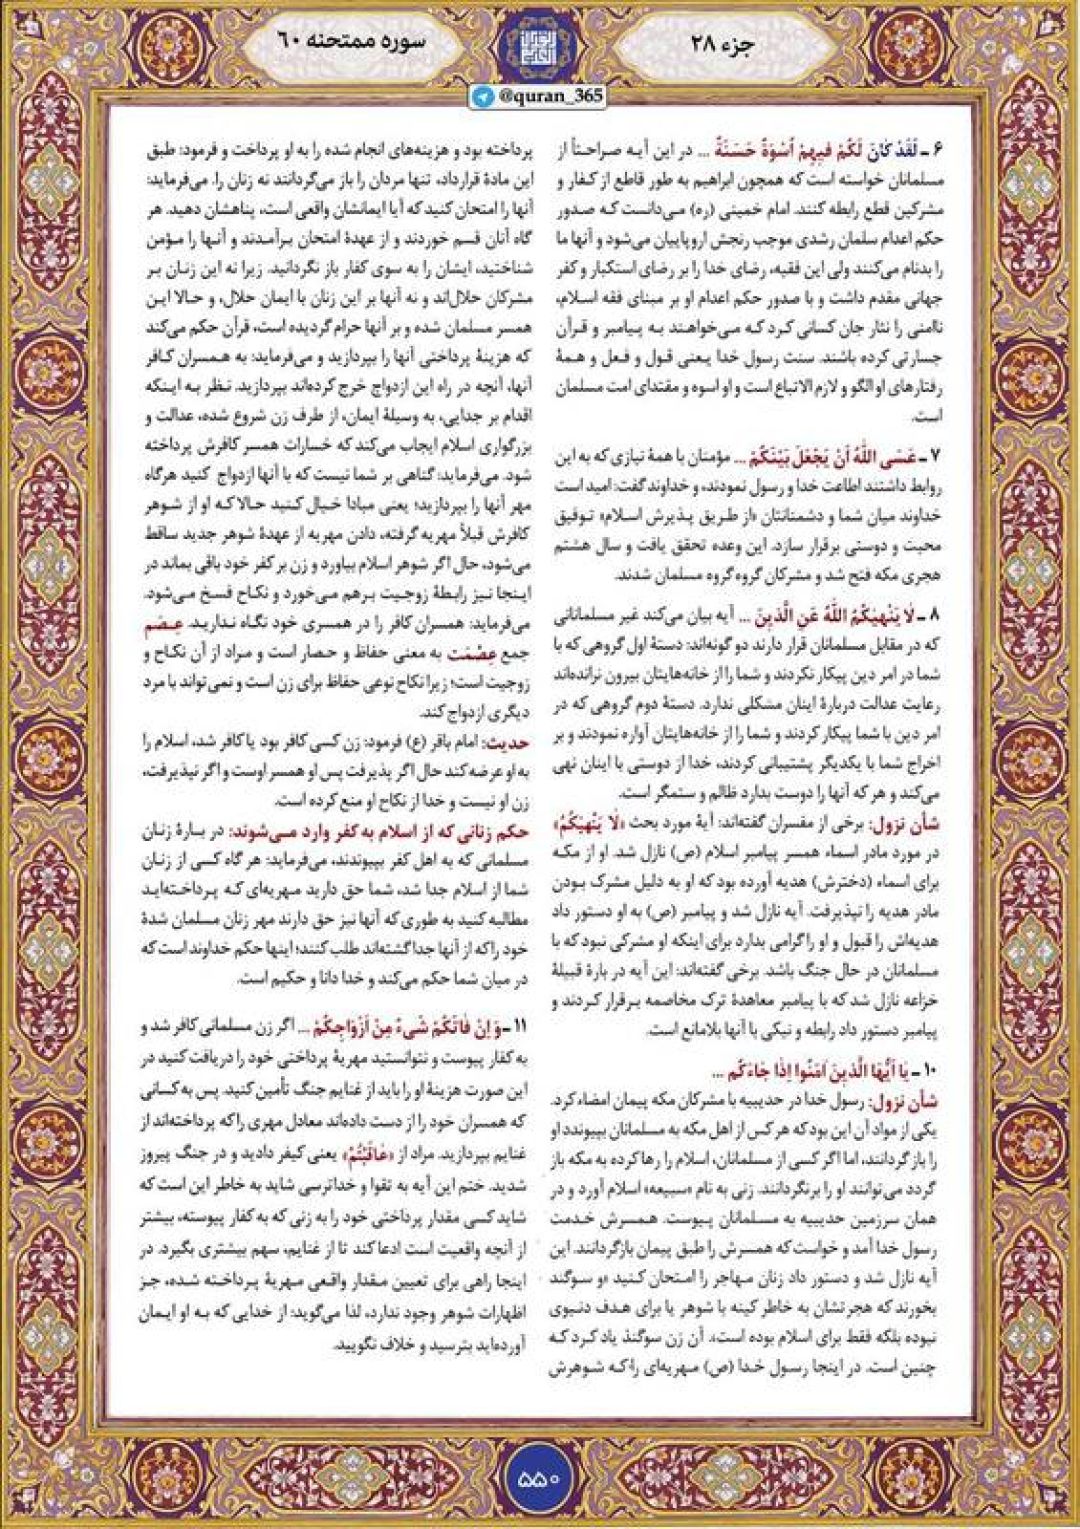 جزء ۲۸
سوره ممتحنه ۶۰
@quran_365
۶ ـ لَقَدْ کَانَ لَکُمْ فِیهِمْ أُسْوَةٌ حَسَنَةٌ ... در این آیه صراحتاً از
مسلمانان خواسته است که همچون ابراهیم به طور قاطع از کفار و
مشرکین قطع رابطه کنند. امام خمینی (ره) می‌دانست که صدور
حکم اعدام سلمان رشدی موجب رنجش اروپاییان می‌شود و آنها ما
را بدنام می‌کنند ولی این فقیه، رضای خدا را بر رضای استکبار و کفر
جهانی مقدم داشت و با صدور حکم اعدام او بر مبنای فقه اسلام،
ناامنی را نثار جان کسانی کرد که می‌خواهند به پیامبر و قرآن
جسارتی کرده باشند. سنت رسول خدا یعنی قول و فعل و همهٔ
رفتارهای او الگو و لازم الاتباع است و او اسوه و مقتدای امت مسلمان
است.
۷ ـ عَسَی اللّٰهُ أَنْ یَجْعَلَ بَیْنَکُمْ ... مؤمنان با همهٔ نیازی که به این
روابط داشتند اطاعت خدا و رسول نمودند، و خداوند گفت: امید است
خداوند میان شما و دشمنانتان «از طریق پذیرش اسلام» توفیق
محبت و دوستی برقرار سازد. این وعده تحقق یافت و سال هشتم
هجری مکه فتح شد و مشرکان گروه گروه مسلمان شدند.
۸ ـ لَا یَنْهٰیکُمُ اللّٰهُ عَنِ الَّذِینَ ... آیه بیان می‌کند غیر مسلمانانی
که در مقابل مسلمانان قرار دارند دو گونه‌اند: دستهٔ اول گروهی که با
شما در امر دین پیکار نکردند و شما را از خانه‌هایتان بیرون نرانده‌اند
رعایت عدالت دربارهٔ اینان مشکلی ندارد. دستهٔ دوم گروهی که در
امر دین با شما پیکار کردند و شما را از خانه‌هایتان آواره نمودند و بر
اخراج شما با یکدیگر پشتیبانی کردند، خدا از دوستی با اینان نهی
می‌کند و هر که آنها را دوست بدارد ظالم و ستمگر است.
شأن نزول: برخی از مفسران گفته‌اند: آیهٔ مورد بحث «لَا یَنْهٰیکُمُ»
در مورد مادر اسماء همسر پیامبر اسلام (ص) نازل شد. او از مکه
برای اسماء (دخترش) هدیه آورده بود که او به دلیل مشرک بودن
مادر هدیه را نپذیرفت. آیه نازل شد و پیامبر (ص) به او دستور داد
هدیه‌اش را قبول و او را گرامی بدارد برای اینکه او مشرکی نبود که با
مسلمانان در حال جنگ باشد. برخی گفته‌اند: این آیه در بارهٔ قبیلهٔ
خزاعه نازل شد که با پیامبر معاهدهٔ ترک مخاصمه برقرار کردند و
پیامبر دستور داد رابطه و نیکی با آنها بلامانع است.
۱۰ ـ یَا أَیُّهَا الَّذِینَ آمَنُوا إِذَا جَاءَکُم ...
شأن نزول: رسول خدا در حدیبیه با مشرکان مکه پیمان امضاء کرد.
یکی از مواد آن این بود که هر کس از اهل مکه به مسلمانان بپیوندد او
را باز گردانند، اما اگر کسی از مسلمانان، اسلام را رها کرده به مکه باز
گردد می‌توانند او را برنگردانند. زنی به نام «سبیعه» اسلام آورد و در
همان سرزمین حدیبیه به مسلمانان پیوست. همسرش خدمت
رسول خدا آمد و خواست که همسرش را طبق پیمان بازگردانند. این
آیه نازل شد و دستور داد زنان مهاجر را امتحان کنید «و سوگند
بخورند که هجرتشان به خاطر کینه با شوهر یا برای هدف دنیوی
نبوده بلکه فقط برای اسلام بوده است». آن زن سوگند یاد کرد که
چنین است. در اینجا رسول خدا (ص) مهریه‌ای را که شوهرش
پرداخته بود و هزینه‌های انجام شده را به او پرداخت و فرمود: طبق
این مادهٔ قرارداد، تنها مردان را باز می‌گردانند نه زنان را. می‌فرماید:
آنها را امتحان کنید که آیا ایمانشان واقعی است، پناهشان دهید. هر
گاه آنان قسم خوردند و از عهدهٔ امتحان برآمدند و آنها را مؤمن
شناختید، ایشان را به سوی کفار باز نگردانید. زیرا نه این زنان بر
مشرکان حلال‌اند و نه آنها بر این زنان با ایمان حلال، و حالا این
همسر مسلمان شده و بر آنها حرام گردیده است، قرآن حکم می‌کند
که هزینهٔ پرداختی آنها را بپردازید و می‌فرماید: به همسران کافر
آنها، آنچه در راه این ازدواج خرج کرده‌اند بپردازید. نظر به اینکه
اقدام بر جدایی، به وسیلهٔ ایمان، از طرف زن شروع شده، عدالت و
بزرگواری اسلام ایجاب می‌کند که خسارات همسر کافرش پرداخته
شود. می‌فرماید: گناهی بر شما نیست که با آنها ازدواج کنید هرگاه
مهر آنها را بپردازید؛ یعنی مبادا خیال کنید حالا که او از شوهر
کافرش قبلاً مهریه گرفته، دادن مهریه از عهدهٔ شوهر جدید ساقط
می‌شود، حال اگر شوهر اسلام بیاورد و زن بر کفر خود باقی بماند در
اینجا نیز رابطهٔ زوجیت برهم می‌خورد و نکاح فسخ می‌شود.
می‌فرماید: همسران کافر را در همسری خود نگاه ندارید. عِصَم
جمع عِصْمَت به معنی حفاظ و حصار است و مراد از آن نکاح و
زوجیت است؛ زیرا نکاح نوعی حفاظ برای زن است و نمی‌تواند با مرد
دیگری ازدواج کند.
حدیث: امام باقر (ع) فرمود: زن کسی کافر بود یا کافر شد، اسلام را
به او عرضه کند حال اگر پذیرفت پس او همسر اوست و اگر نپذیرفت،
زن او نیست و خدا از نکاح او منع کرده است.
حکم زنانی که از اسلام به کفر وارد می‌شوند: در بارهٔ زنان
مسلمانی که به اهل کفر بپیوندند، می‌فرماید: هر گاه کسی از زنان
شما از اسلام جدا شد، شما حق دارید مهریه‌ای که پرداخته‌اید
مطالبه کنید به طوری که آنها نیز حق دارند مهر زنان مسلمان شدهٔ
خود را که از آنها جدا گشته‌اند طلب کنند؛ اینها حکم خداوند است که
در میان شما حکم می‌کند و خدا دانا و حکیم است.
۱۱ ـ وَ إِنْ فَاتَکُمْ شَیْءٌ مِنْ أَزْوَاجِکُمْ ... اگر زن مسلمانی کافر شد و
به کفار پیوست و نتوانستید مهریهٔ پرداختی خود را دریافت کنید در
این صورت هزینهٔ او را باید از غنایم جنگ تأمین کنید. پس به کسانی
که همسران خود را از دست داده‌اند معادل مهری را که پرداخته‌اند از
غنایم بپردازید. مراد از «عَاقَبْتُمْ» یعنی کیفر دادید و در جنگ پیروز
شدید. ختم این آیه به تقوا و خداترسی شاید به خاطر این است که
شاید کسی مقدار پرداختی خود را به زنی که به کفار پیوسته، بیشتر
از آنچه واقعیت است ادعا کند تا از غنایم، سهم بیشتری بگیرد. در
اینجا راهی برای تعیین مقدار واقعی مهریهٔ پرداخته شده، جز
اظهارات شوهر وجود ندارد، لذا می‌گوید: از خدایی که به او ایمان
آورده‌اید بترسید و خلاف نگویید.
۵۵۰